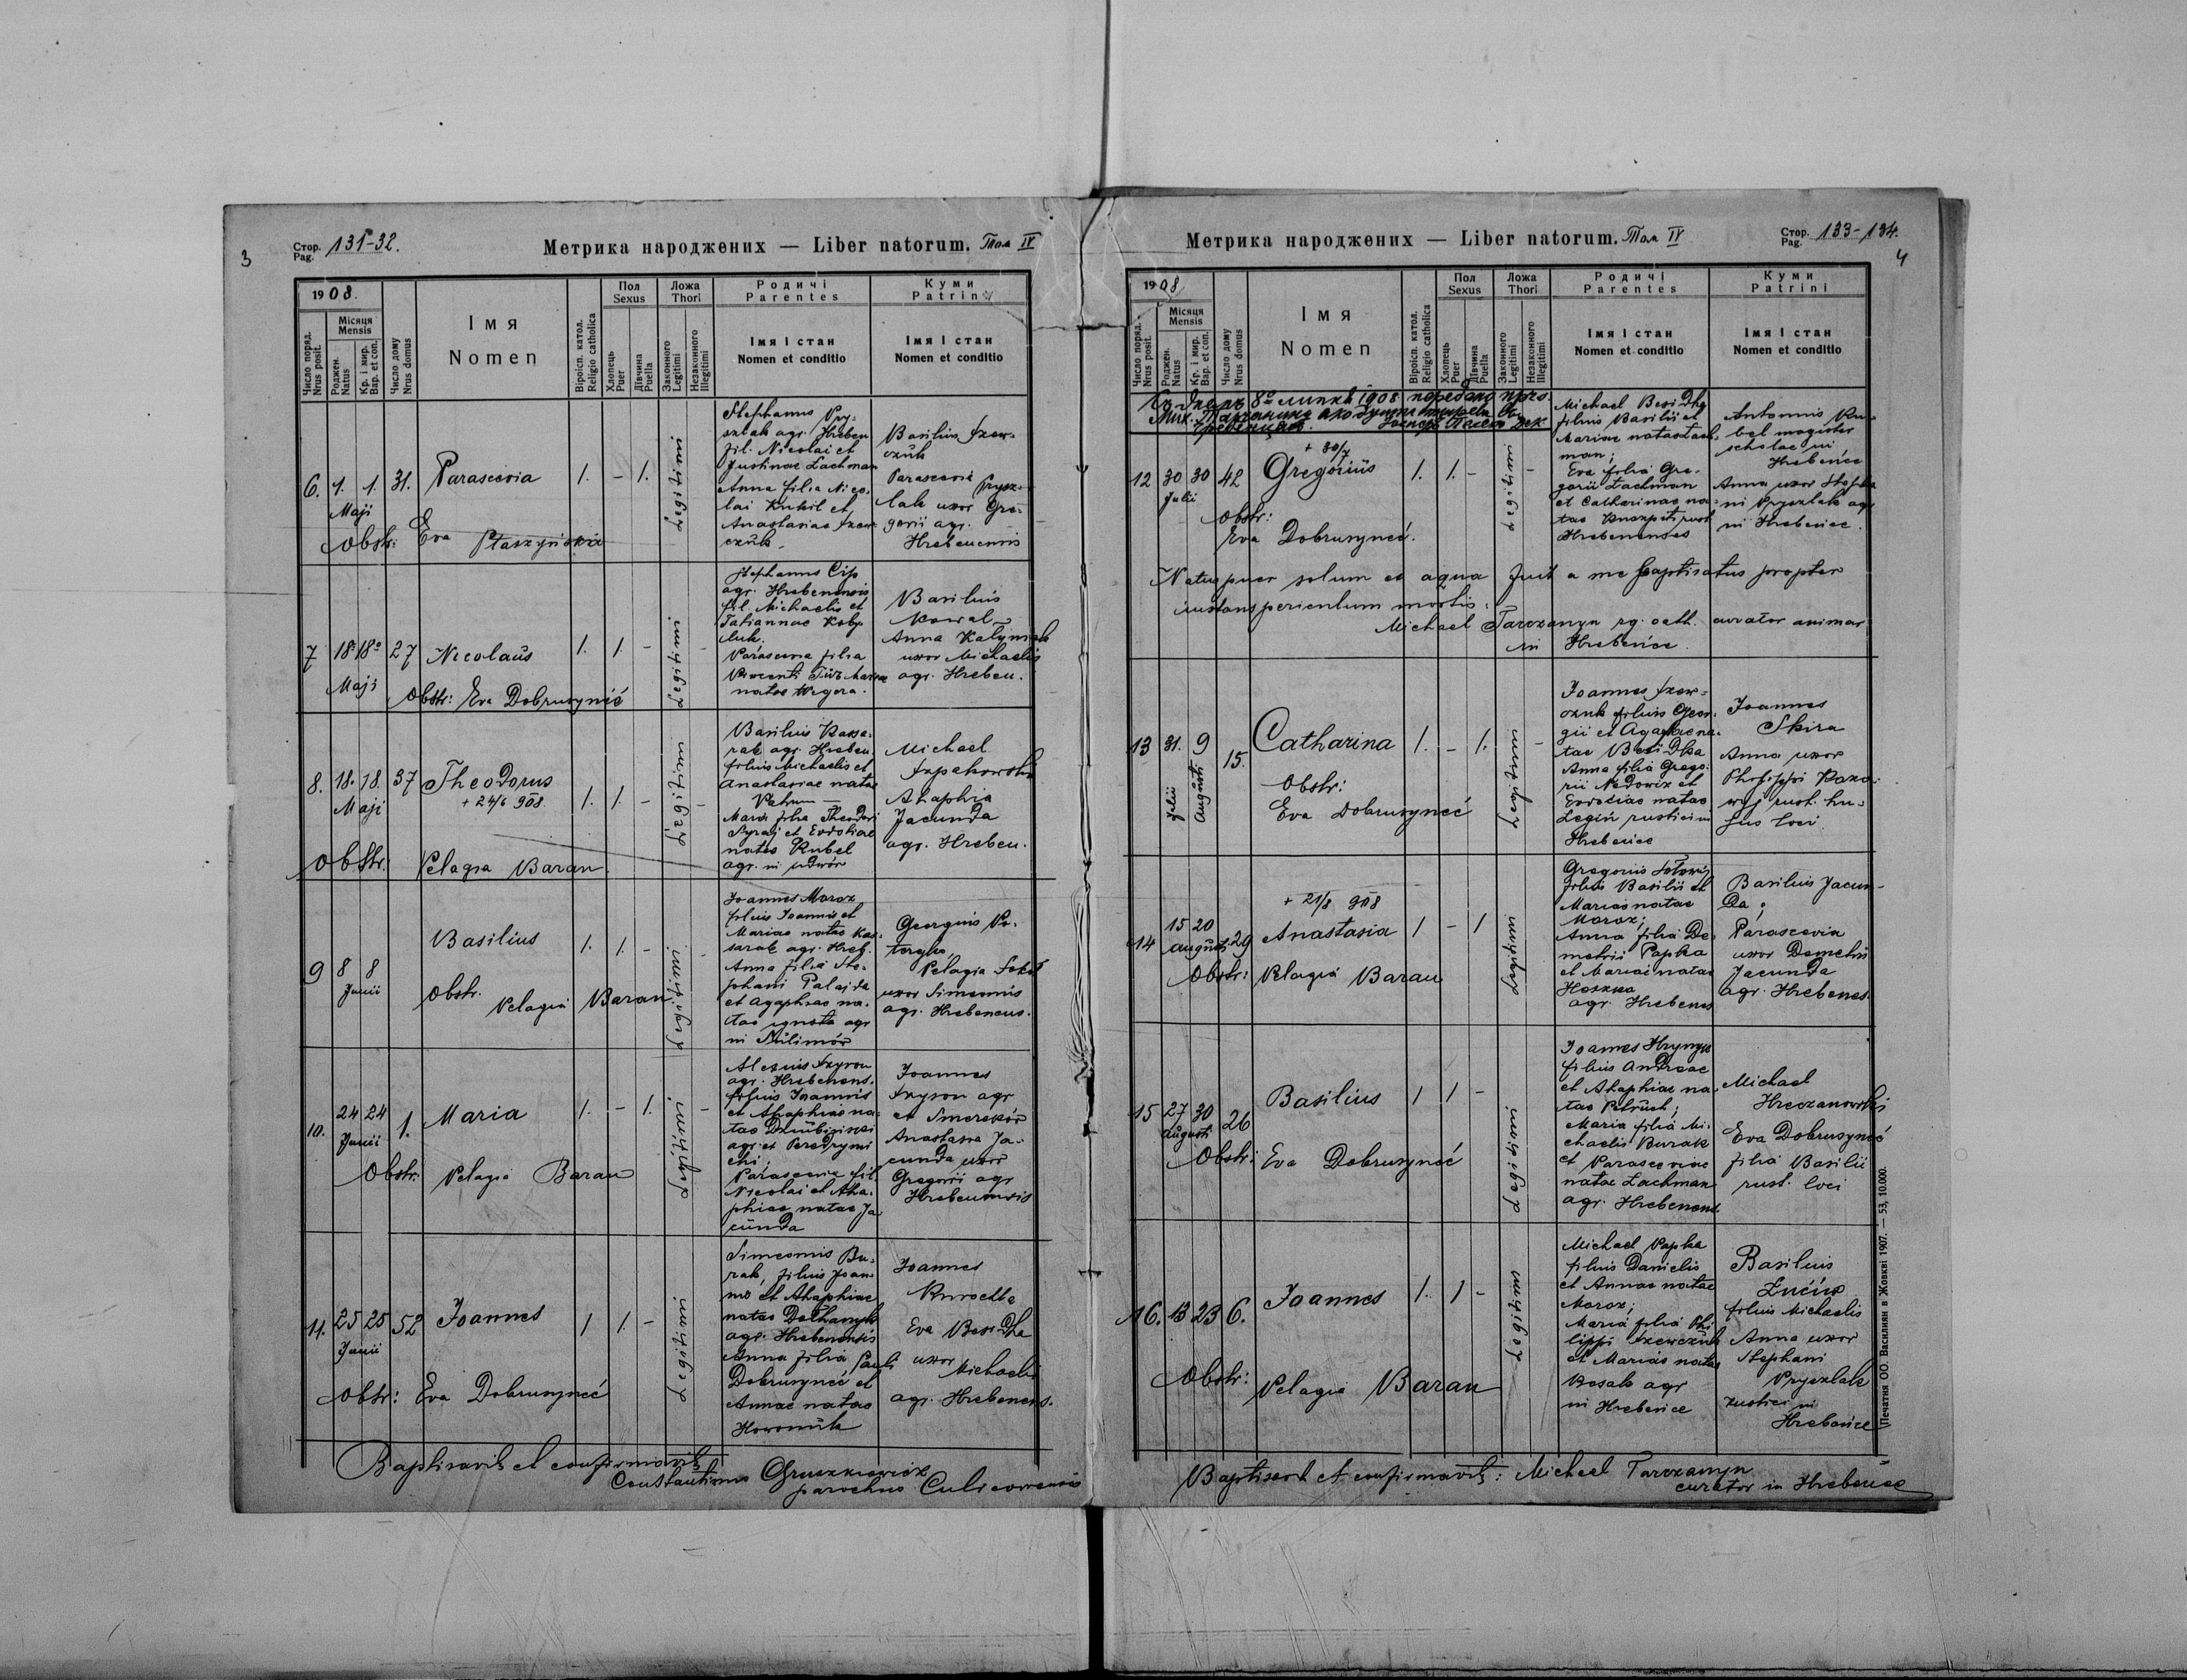 3
Стор.
Pag. 131-32.
Метрика народжених — Liber natorum. Том IV
1908.
Число поряд.
Nrus posit.
Місяця
Mensis
Роджен.
Natus
Кр. і мир.
Bap. et con.
Число дому
Nrus domus
Імя
Nomen
Віроісп. катол.
Religio catholica
Пол
Sexus
Хлопець
Puer
Дівчина
Puella
Ложа
Thori
Законного
Legitimi
Незаконного
Illegitimi
Родичі
Parentes
Імя і стан
Nomen et conditio
Куми
Patrini
Імя і стан
Nomen et conditio
6. 1. 1. 31. Parascevia 1. - 1. Legitimi
Maji
Obstr: Eva Ptaszyńska
Stephanus Pry-
szlak agr. Hreben
fil. Nicolai et
Justinae Lachman
Anna filia Nico-
lai Kuhil et
Anastasiae Szew-
czuk.
Basilius Szew-
czuk
Parascevia Prysz-
lak uxor Gre-
gorii agr.
Hrebenensis
7 18 18 27 Nicolaus 1. 1. - Legitimi
Maji
Obstr: Eva Dobrusyneć
Stephanus Cip
agr. Hrebenensis
fil. Michaelis et
Tatiannae Koby
luk.
Parascevia filia
natae Wegera.
Basilius
Kowal
Anna Kalyniak
uxor Michaelis
agr. Hreben.
8. 18. 18. 37 Theodorus 1. 1. - Legitimi
Maji
+ 24/6 908.
Obstr. Pelagia Baran
Basilius Kassa-
rab agr. Hreben.
filius Michaelis et
Anastasiae natae
Petrum
Maria filia Theodori
Syraj et Evdokiae
natae Kubel
agr. in Udnów
Michael
Szpakowski
Ahaphia
Jacunda
agr. Hreben.
9 8 8 Basilius 1. 1. - Legitimi
Junii
Obstr. Pelagia Baran
Joannes Moroz
filius Joannis et
Mariae natae Kas-
sarab agr. Hreb.
Anna filia Ste-
phani Palajda
et Agaphiae na-
tae ignota agr
in Kulimów
Georgius Po-
terylo,
Pelagia Sokol
uxor Simeonis
agr. Hrebenens.
10. 24 24 1. Maria 1. - 1. Legitimi
Junii
Obstr. Pelagia Baran
Alexius Szyron
agr. Hrebenens.
filius Joannis
et Ahaphiae na-
tae Dziubinski
agr. et Peredrymi
chi.
Parascevia fil.
Nicolai et Aha-
phiae natae Ja
cunda
Joannes
Szyron agr
et Smereków
Anastasia Ja-
cunda uxor
Gregorii agr
Hrebenensis
11. 25 25 52 Joannes 1 1. - Legitimi
Junii
Obstr: Eva Dobrusyneć
Simeonis Bu-
rak, filius Joan-
nis et Ahaphiae
natae Dolhanyk
agr. Hrebenensis
Anna filia Pauli
Dobrusyneć et
Annae natae
Howoruk
Joannes
Kurochta
Eva Besidha
uxor
Michaelis
agr. Hrebenens.
Baptisavit et confirmavit
Constantinus Gruszkiewicz
parochus Culicoviensis
4
Метрика народжених — Liber natorum. Том IV
Стор.
Pag. 133-134.
1908
Число поряд.
Nrus posit.
Місяця
Mensis
Роджен.
Natus
Кр. і мир.
Bap. et con.
Число дому
Nrus domus
Імя
Nomen
Віроісп. катол.
Religio catholica
Пол
Sexus
Хлопець
Puer
Дівчина
Puella
Ложа
Thori
Законного
Legitimi
Незаконного
Illegitimi
Родичі
Parentes
Імя і стан
Nomen et conditio
Куми
Patrini
Імя і стан
Nomen et conditio
8го липня 1908 передано
Мих. Тарчанинъ
12 30 30 42 Gregorius 1. 1. - Legitimi -
Julii
+ 30/7
Obstr:
Eva Dobrusyneć.
Michael Besidha
filius Basilii et
Mariae natae Lach-
man;
Eva filia Gre-
gorii Lachman
et Catharinae na-
tae
Hrebenenses
Antonius Ku-
bel magister
scholae in
Hrebeńce
Anna uxor Stepha
ni Pryszlak agr
in Hrebeńce.
Natus puer solum ex aqua fuit a me baptisatus propter
instans periculum mortis.
Michael Tarczanyn rg. cath. curator animar
in Hrebeńce.
13 31. 9 15. Catharina 1. - 1. Legitimi -
Julii
Augusti
Obstr:
Eva Dobrusyneć
Joannes Szew-
czuk filius Geor-
gii et Agaphiae na-
tae Besidha
Anna filia Grego-
rii Nedowiz et
Evdokiae natae
Legiń rustici in
Hrebeńce
Joannes
Skira
Anna uxor
Philippi Kaza-
wyj rust. hu-
jus loci.
14 15 20 29 Anastasia 1 - 1 Legitimi
Augusti
+ 21/8 908
Obstr: Pelagia Baran
Gregorius
filius Basilii et
Mariae natae
Moroz;
Anna filia De-
metrii Papka
et Mariae natae
Hoszka
agr. Hrebenens
Basilius Jacun-
da;
Parascevia
uxor Demetrii
Jacunda
agr. Hrebenens.
15 27 30 26 Basilius 1 1 - Legitimi
Augusti
Obstr: Eva Dobrusyneć
Joannes Hrynyk
filius Andreae
et Ahaphiae na-
tae Petruch;
Maria filia Mi-
chaelis Burak
et Parasceviae
natae Lachman
agr. Hrebenens.
Michael
Hreczanowski
Eva Dobrusyneć
filia Basilii
rust. loci
16. 13 23 6. Joannes 1. 1 - Legitimi
Obstr: Pelagia Baran
Michael Papka
filius Danielis
et Annae natae
Moroz;
Maria filia Phi
lippi Szewczuk
et Mariae natae
Bosak agr
in Hrebeńce
Basilius
Luciw
filius Michaelis
Anna uxor
Stephani
Pryszlak
rustici in
Hrebeńce
Baptisavit et confirmavit: Michael Tarczanyn
curator in Hrebeńce
Печатня ОО. Василиян в Жовкві 1907. — 53, 10.000.